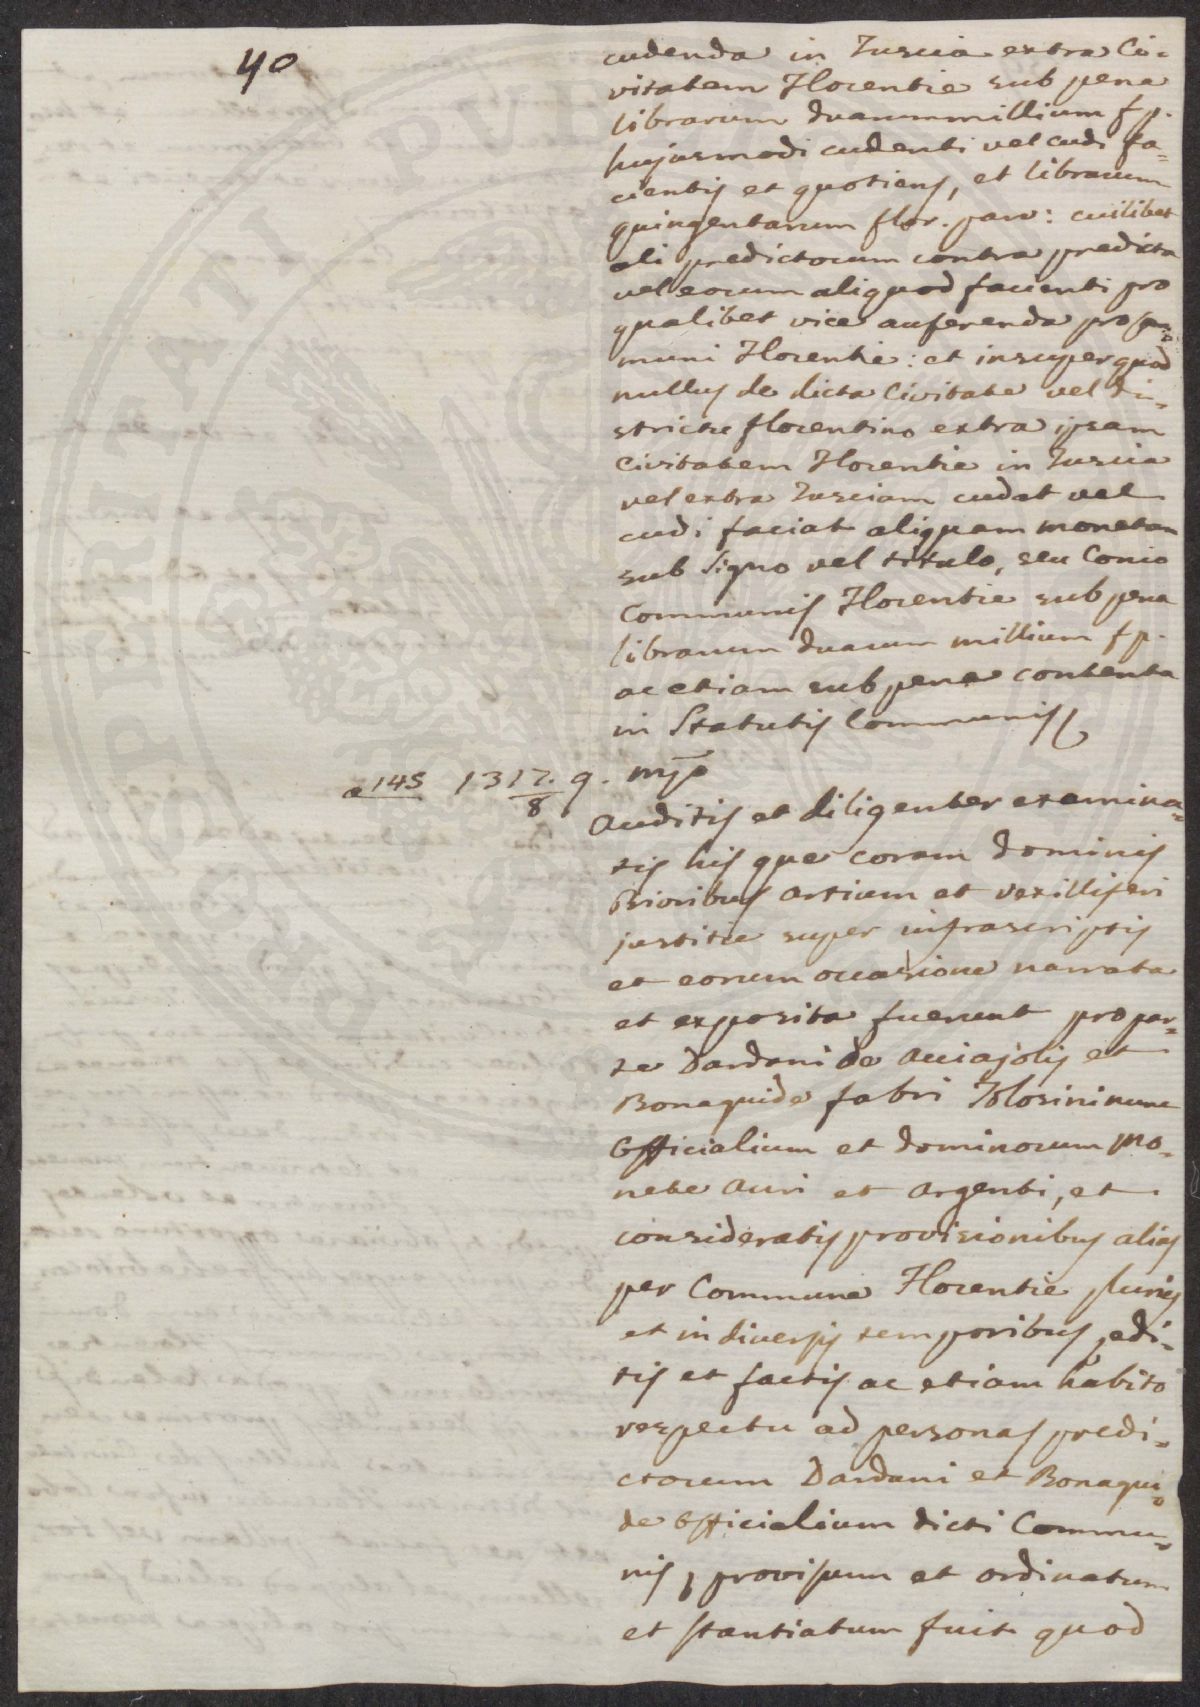 40
cudenda in Tuscia extra Ci-
vitatem Florentie sub pena
librarum duarummillium f p.
hujusmodi cudenti vel cudi fa=
cientis et quotiens, et librarum
quingentarum flor. parv: cuilibet
alii predictorum contra predicta
vel eorum aliquod facienti pro
qualibet vice auferenda pro Com=
muni Florentie: et insuper quod
nullus de dicta Civitate vel di=
strictu florentino extra ipsam
Civitatem Florentie in Tuscia
vel extra Tusciam cudat vel
cudi faciat aliquam monetam
sub signo vel titulo, seu Conio
Communis Florentie sub pena
librarum duarum millium f p.
ac etiam sub pena contenta
in Statutis Communis
a 145 1317. 9. mžo
8
Auditis et diligenter examina=
tis his que coram dominis
Prioribus Artium et vexilliferi
justitie super infrascriptis
et eorum occasione narrata
et exposita fuerunt pro par=
te Dardani de Acciajolis et
Bonaguide fabri Tolosini nunc
Officialium et dominorum mo=
nete Auri et Argenti, et
consideratis provisionibus alias
per Commune Florentie pluries
et in diversis temporibus edi=
tis et factis ac etiam habito
respectu ad personas predi=
ctorum Dardani et Bonagui=
de Officialium dicti Commu=
nis, provisum et ordinatum
et stantiatum fuit quod